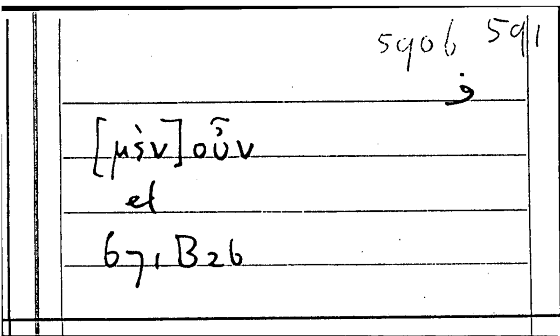 5906 591
ف
[μὲν] οὖν
et
671 B26